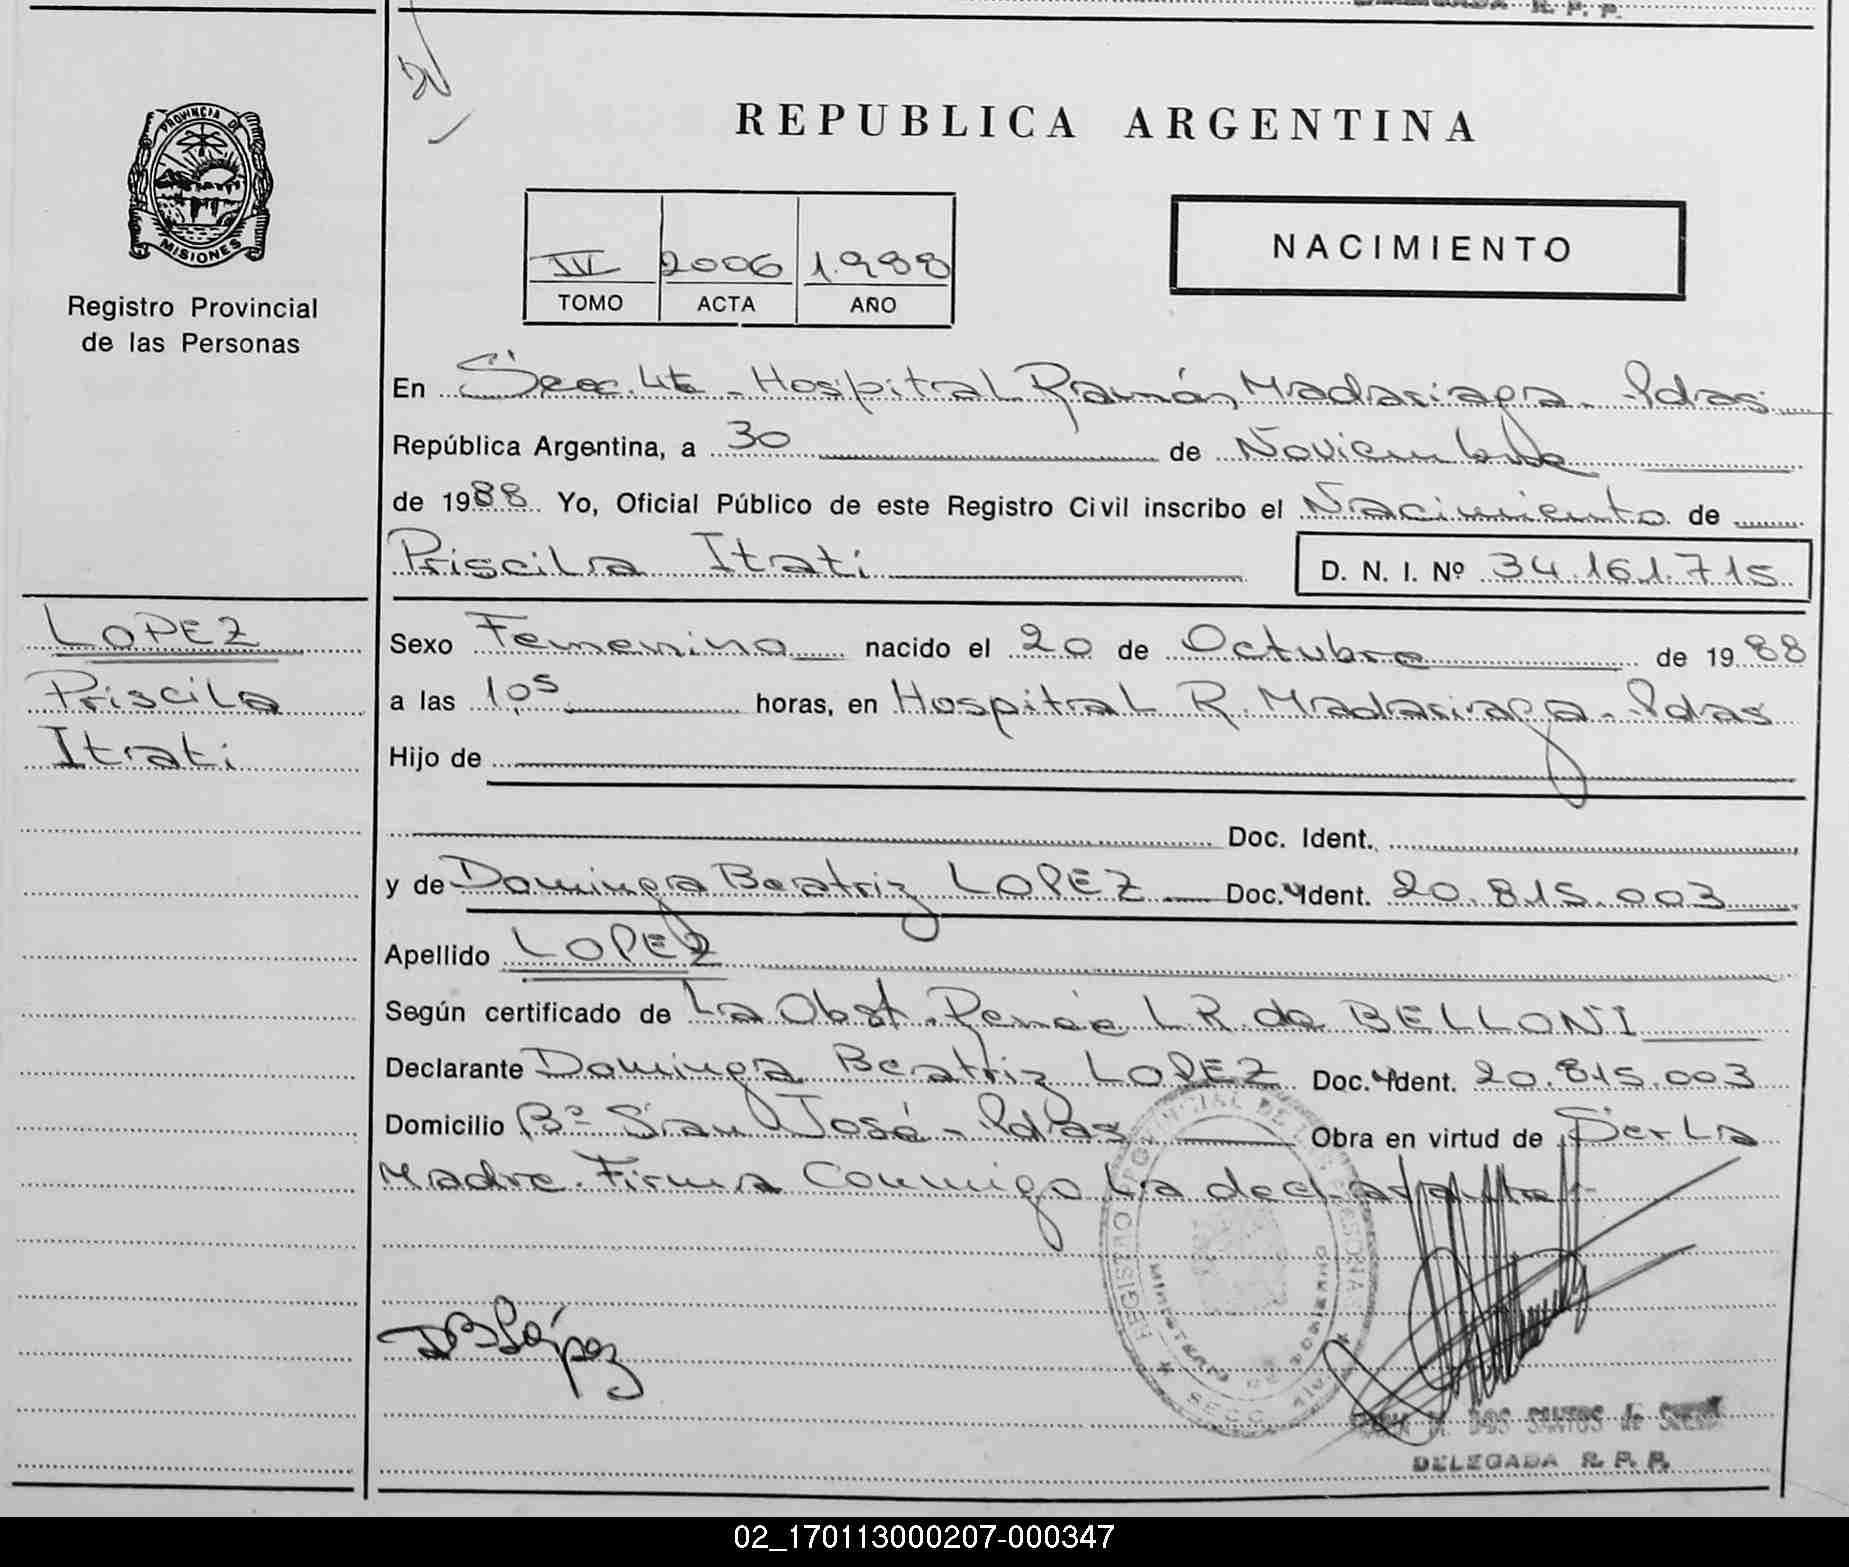 DELEGADA R. P. P.
PROVINCIA DE
MISIONES
Registro Provincial
de las Personas
REPUBLICA ARGENTINA
IV 2006 1.988
TOMO ACTA AÑO
NACIMIENTO
En Secc. 4ta - Hospital Ramón Madariaga - Pdas
República Argentina, a 30 de Noviembre
de 1988 Yo, Oficial Público de este Registro Civil inscribo el Nacimiento de
Priscila Itati D. N. I. Nº 34.161.715
LOPEZ
Priscila
Itati
Sexo Femenino nacido el 20 de Octubre de 1988
a las 10,5 horas, en Hospital R. Madariaga - Pdas
Hijo de
Doc. Ident.
y de Dominga Beatriz LOPEZ Doc. Ident. 20.815.003
Apellido LOPEZ
Según certificado de La Obst. Renée L R. de BELLONI
Declarante Dominga Beatriz LOPEZ Doc. Ident. 20.815.003
Domicilio Bº San José - Pdas Obra en virtud de Ser La
Madre. Firma Conmigo La declarante.-
DBLópez
REGISTRO PROVINCIAL DE LAS PERSONAS
MINISTERIO DE GOBIERNO
SECC. 4ta
M. DOS SANTOS de
DELEGADA R. P. P.
02_170113000207-000347